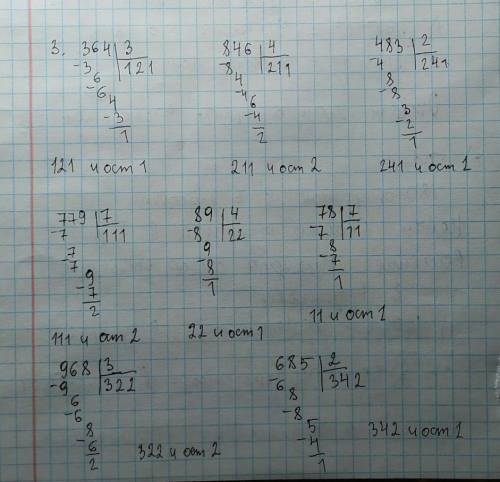 3. 364 | 3   846 | 4   483 | 2
-3 | 121   -8 | 211   -4 | 241
6   4   8
-6   -4   -8
4   6   3
-3   -4   -2
1   2   1
121 и ост 1   211 и ост 2   241 и ост 1
779 | 7   89 | 4   78 | 7
-7 | 111   -8 | 22   -7 | 11
7   9   8
-7   -8   -7
9   1   1
-7
2
111 и ост 2   22 и ост 1   11 и ост 1
968 | 3   685 | 2
-9 | 322   -6 | 342
6   8
-6   -8
8   5
-6   -4
2   1
322 и ост 2   342 и ост 1